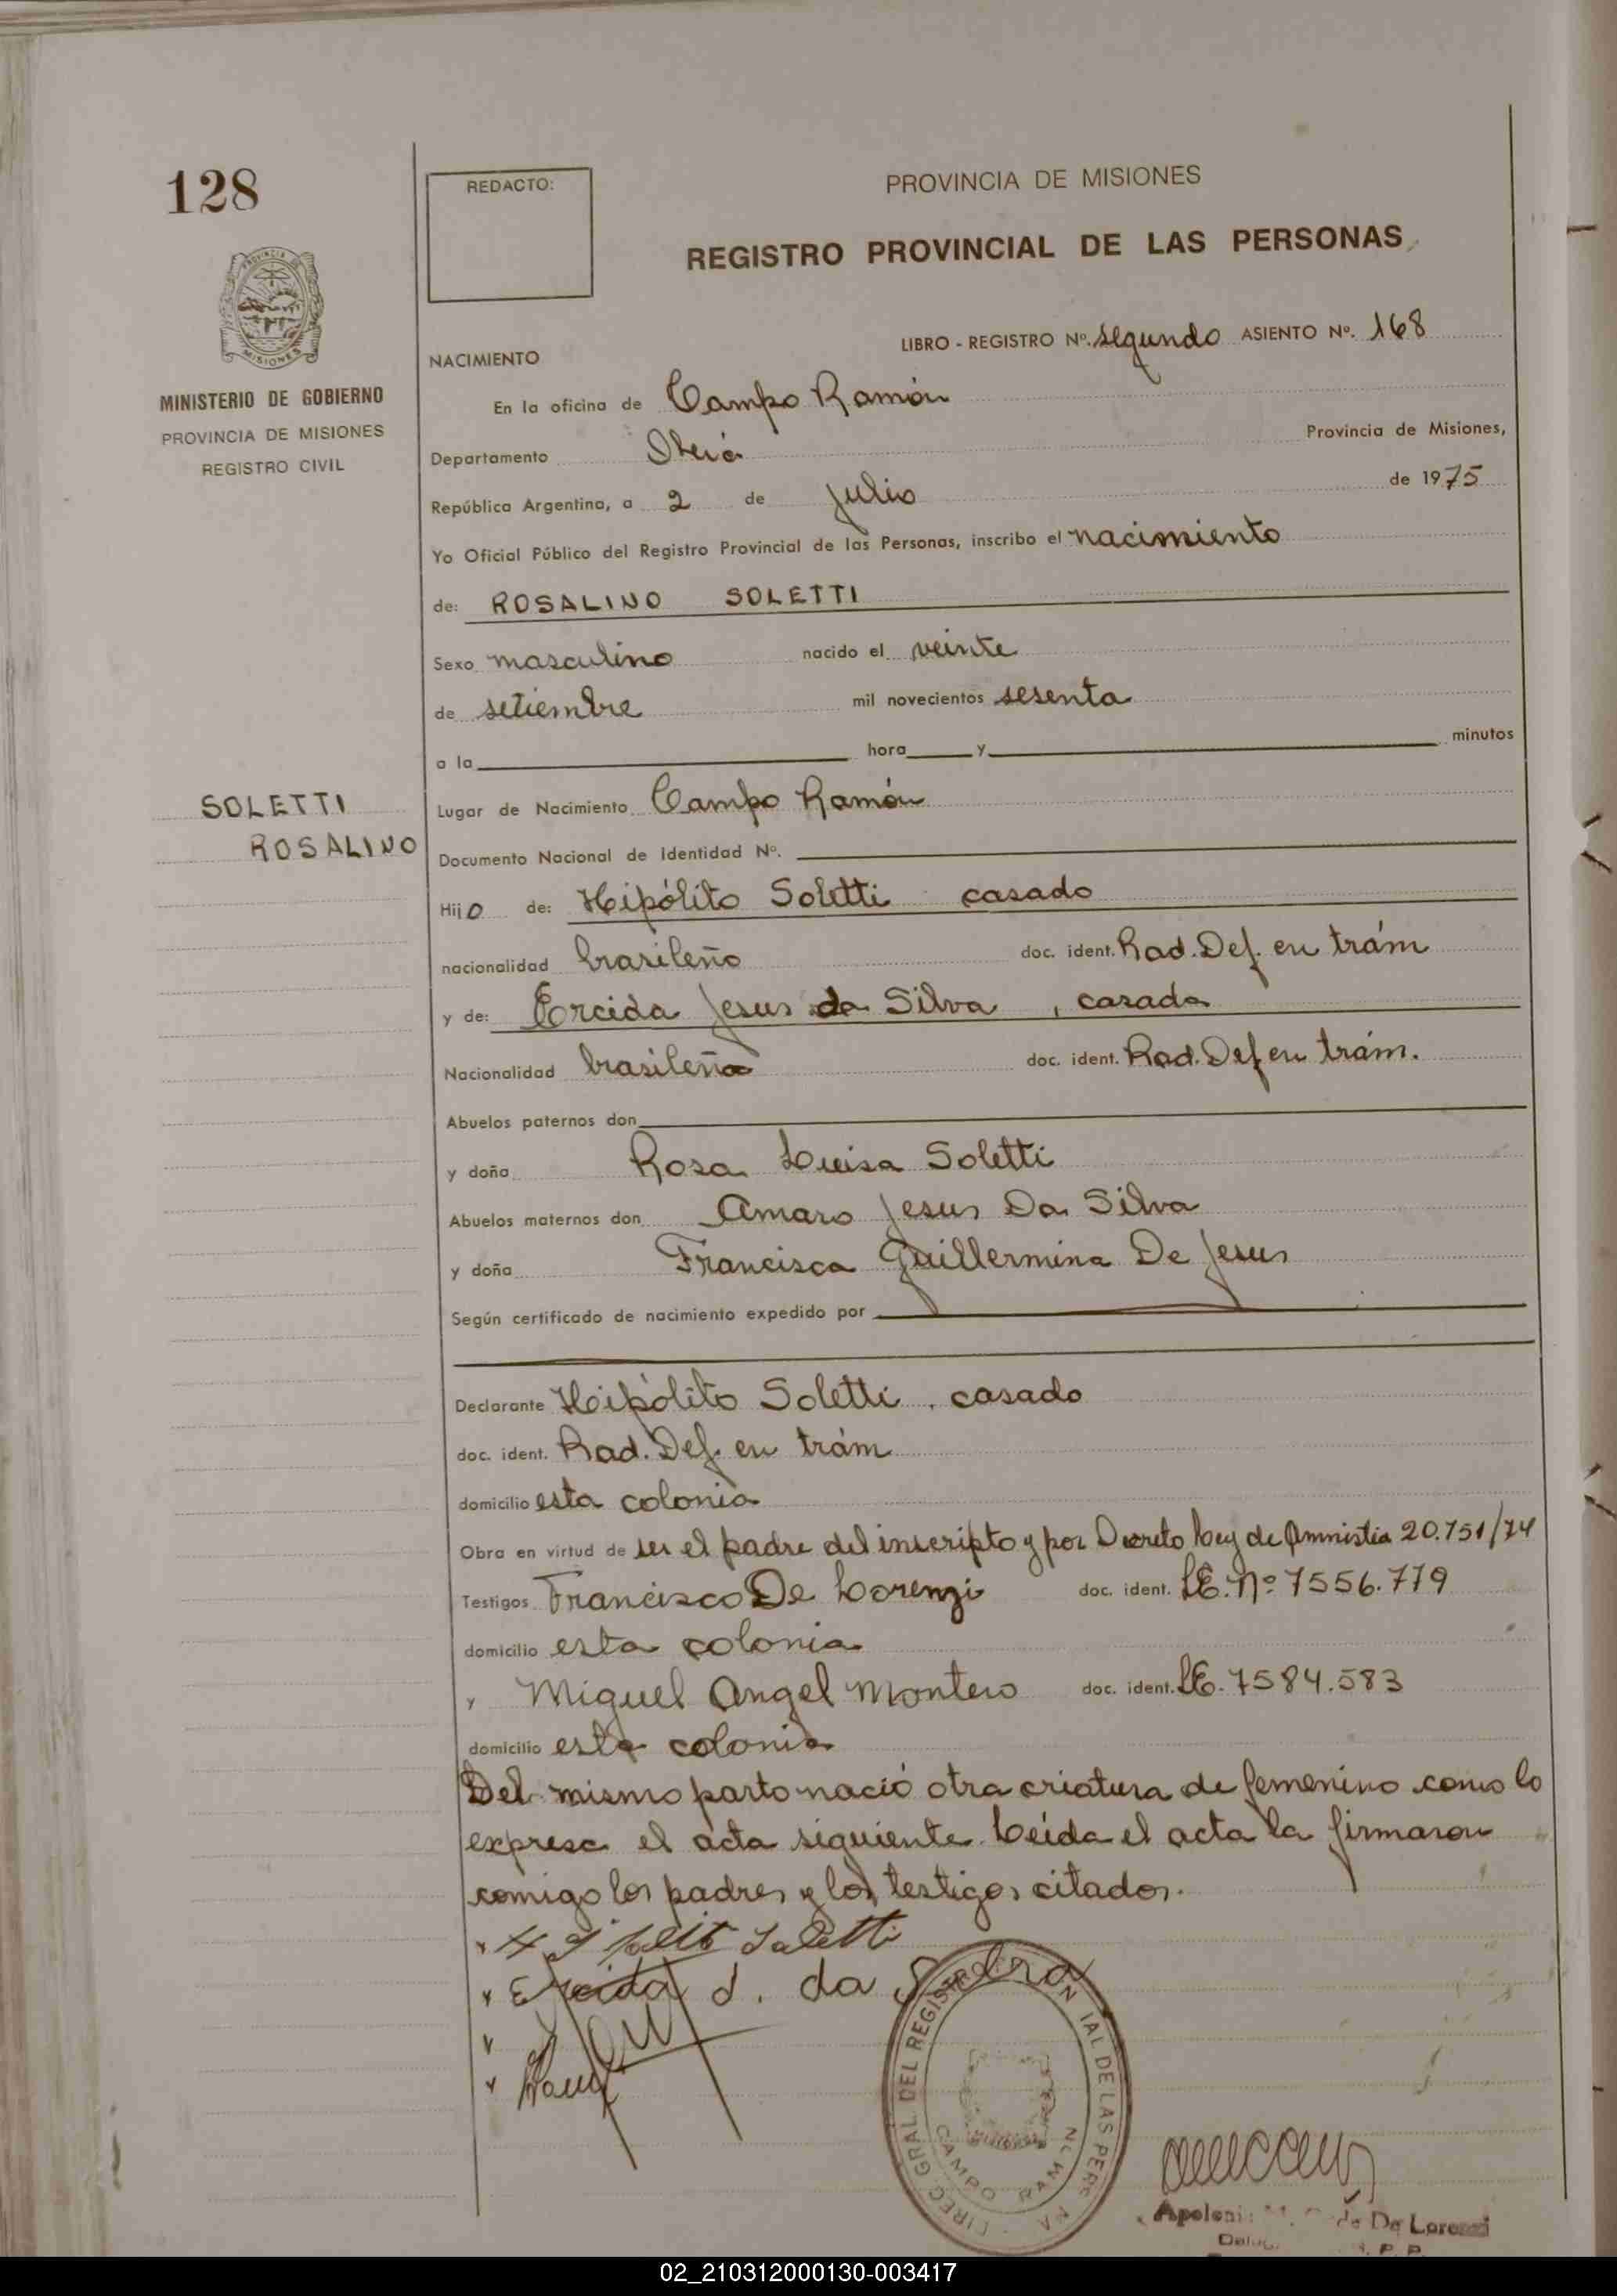 128
REDACTO:
PROVINCIA DE MISIONES
REGISTRO PROVINCIAL DE LAS PERSONAS
PROVINCIA DE
MISIONES
MINISTERIO DE GOBIERNO
PROVINCIA DE MISIONES
REGISTRO CIVIL
LIBRO - REGISTRO Nº. segundo ASIENTO Nº. 168
NACIMIENTO
En la oficina de Campo Ramón
Departamento Oberá Provincia de Misiones,
República Argentina, a 2 de julio de 1975
Yo Oficial Público del Registro Provincial de las Personas, inscribo el nacimiento
de: ROSALINO SOLETTI
Sexo masculino nacido el veinte
de setiembre mil novecientos sesenta
a la hora y minutos
SOLETTI
ROSALINO
Lugar de Nacimiento Campo Ramón
Documento Nacional de Identidad Nº.
Hijo de: Hipólito Soletti casado
nacionalidad brasileño doc. ident. Rad. Def. en trám
y de: Ercida Jesus da Silva , casada
Nacionalidad brasileña doc. ident. Rad. Def en trám.
Abuelos paternos don
y doña Rosa Luisa Soletti
Abuelos maternos don Amaro Jesus Da Silva
y doña Francisca Guillermina De Jesus
Según certificado de nacimiento expedido por
Declarante Hipólito Soletti, casado
doc. ident. Rad. Def. en trám
domicilio esta colonia
Obra en virtud de ser el padre del inscripto y por Decreto Ley de Amnistia 20.751/74
Testigos Francisco De Lorenzi doc. ident. LE. Nº 7556.779
domicilio esta colonia
y Miguel Angel Montero doc. ident. LE. 7584.583
domicilio esta colonia
Del mismo parto nació otra criatura de femenino como lo
expresa el acta siguiente. Leída el acta la firmaron
comigo los padres y los testigos citados.
Soletti
Ercida J. da Silva
GRAL DEL REGISTRO
IAL DE LAS PERS
CAMPO RAMON
De Lorenzi
02_210312000130-003417